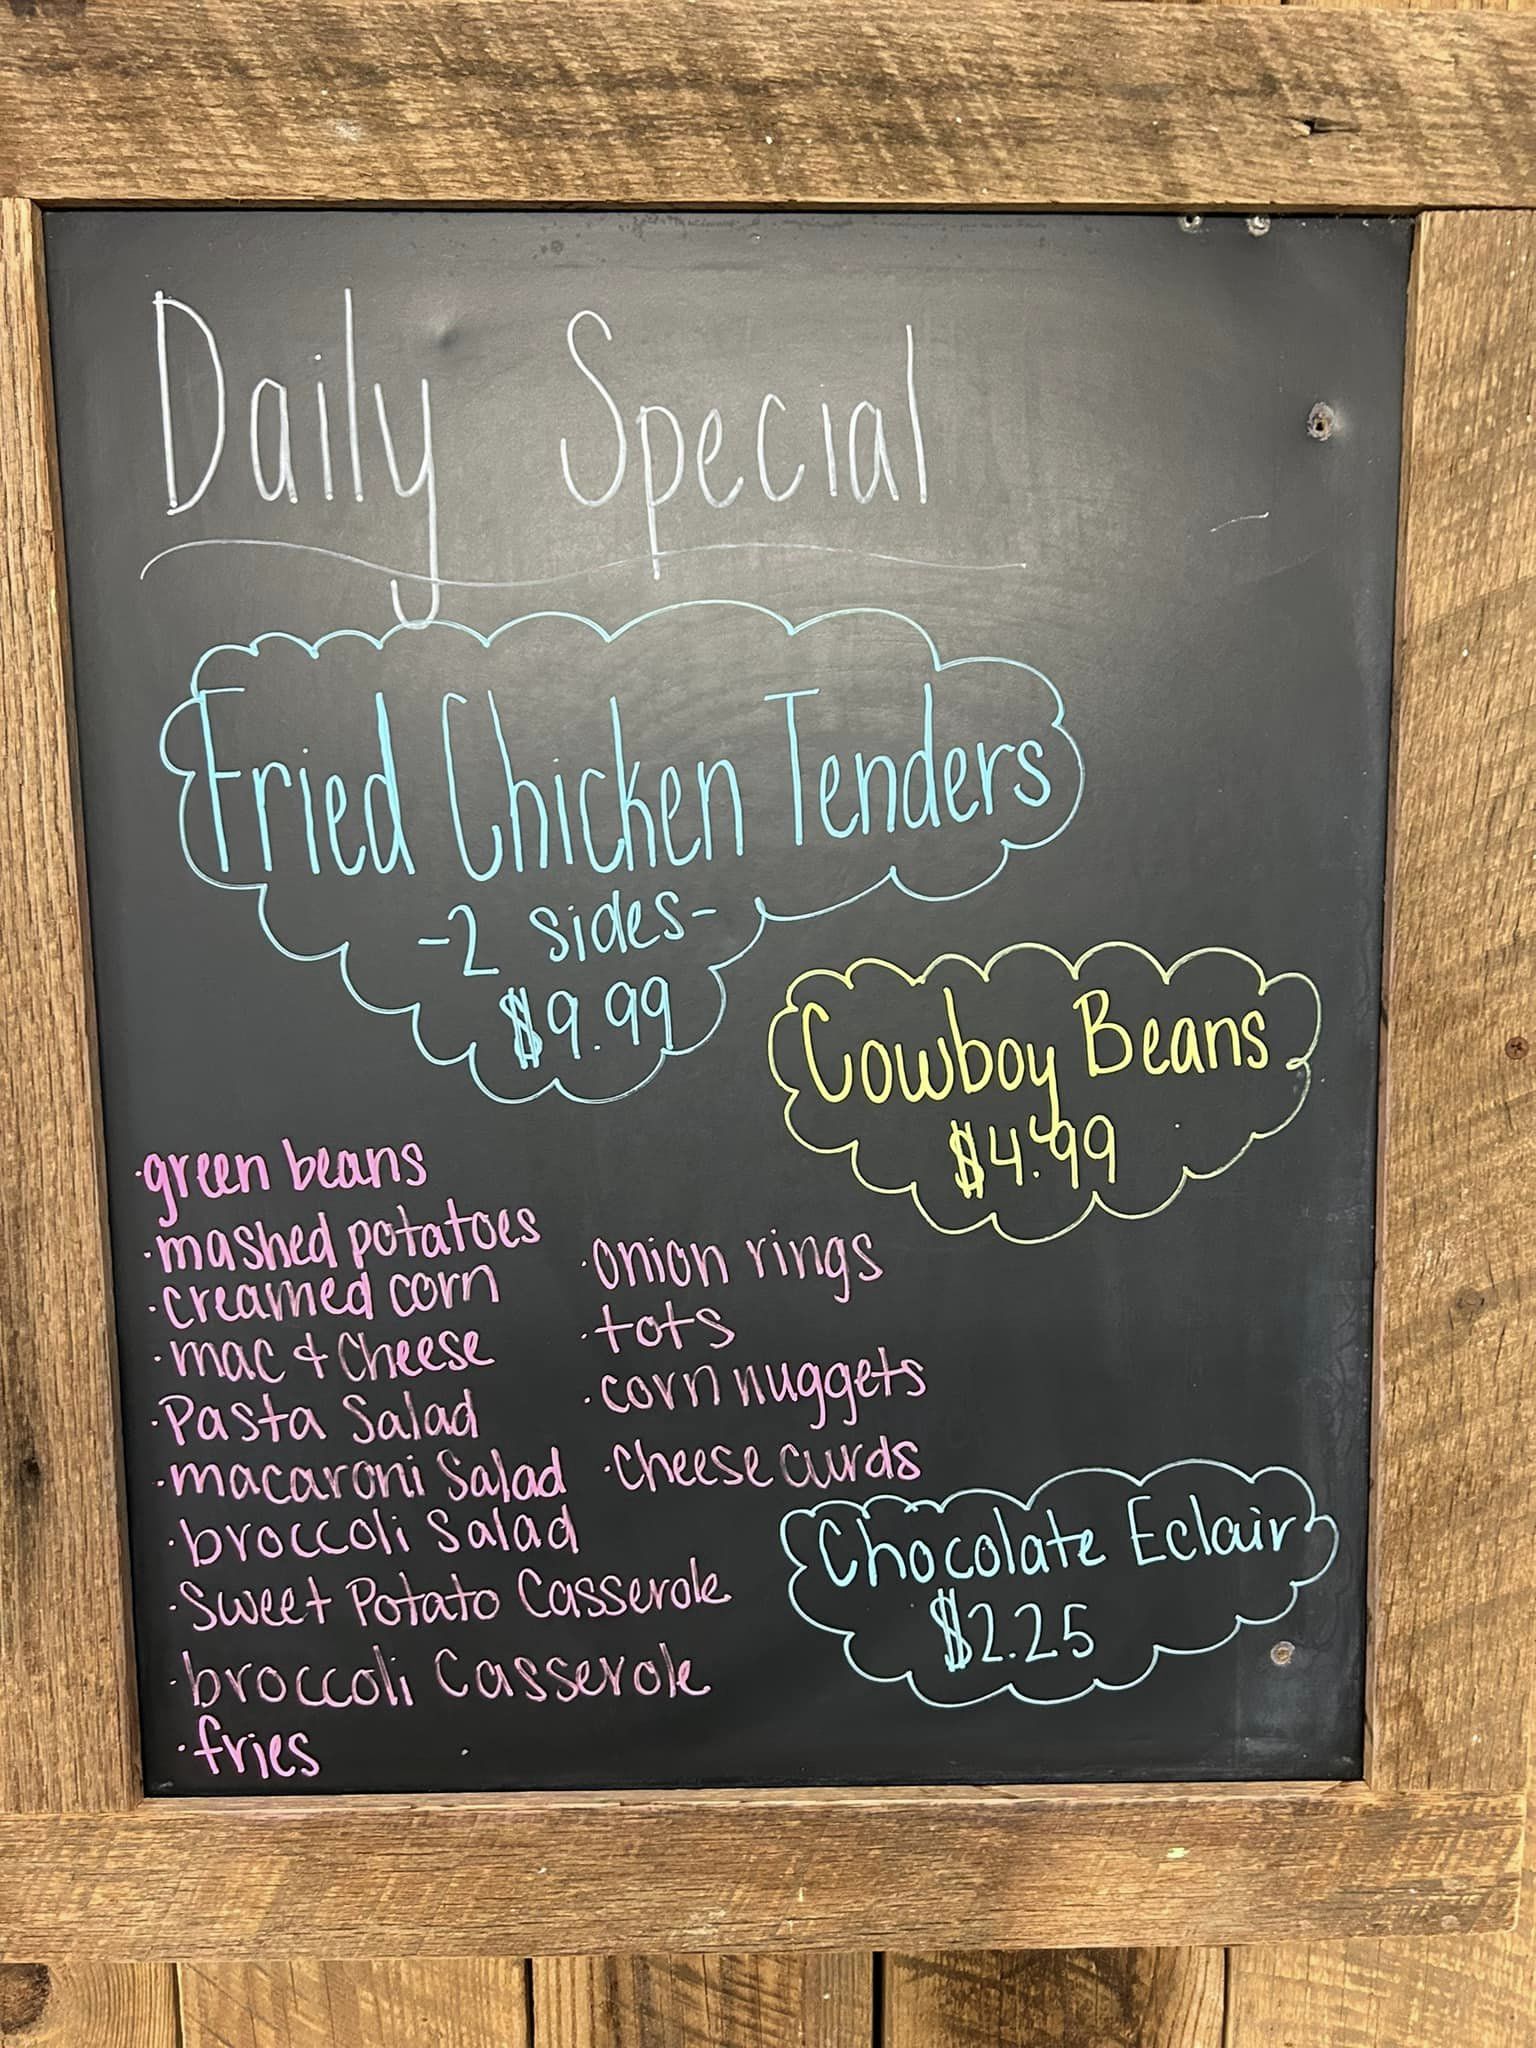 Daily Special
Fried Chicken Tenders
-2 sides-
$9.99
Cowboy Beans
$4.99
·green beans
·mashed potatoes
·creamed corn
·mac & cheese
·Pasta Salad
·macaroni Salad
·broccoli Salad
·Sweet Potato Casserole
·broccoli Casserole
·fries
·onion rings
·tots
·corn nuggets
·cheese curds
Chocolate Eclair
$2.25